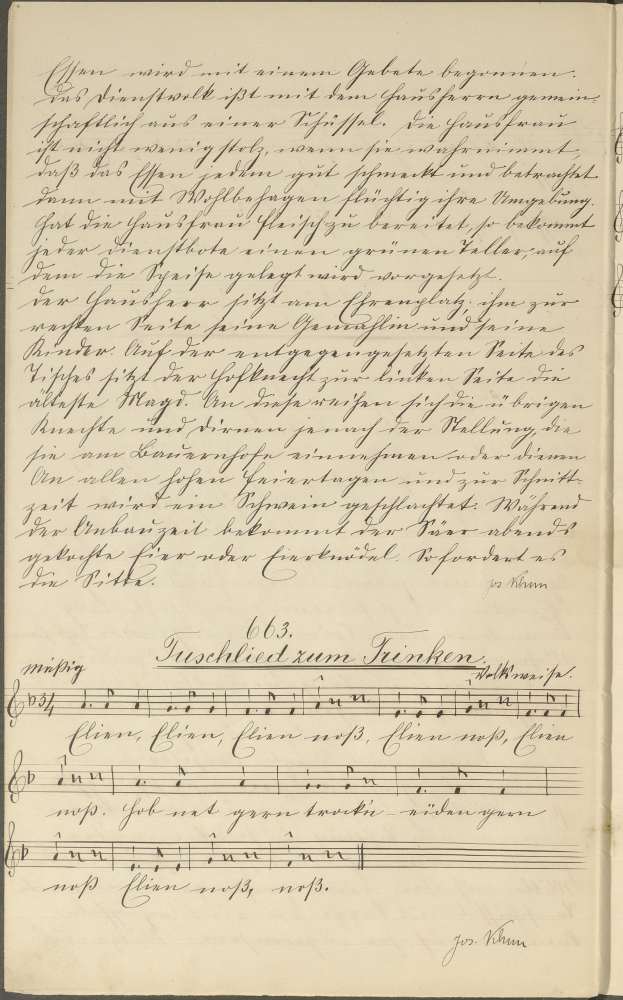 Essen wird mit einem Gebete begonnen.
Das Dienstvolk ißt mit dem Hausherrn gemein-
schaftlich aus einer Schüssel. Die Hausfrau
ist nicht wenig stolz, wenn sie wahrnimmt,
daß das Essen jedem gut schmeckt und betrachtet
dann mit Wohlbehagen flüchtig ihre Umgebung.
Hat die Hausfrau Fleisch zu bereitet, so bekommt
jeder Dienstbote einen grünen Teller, auf
dem die Speise gelegt wird vorgesetzt.
Der Hausherr sitzt am Ehrenplatz. ihm zur
rechten Seite seine Gemahlin und seine
Kinder. Auf der entgegengesetzten Seite des
Tisches sitzt der Hofknecht zur linken Seite die
älteste Magd. An diese reihen sich die übrigen
Knechte und Dirnen jenach der Stellung, die
sie am Bauernhofe einnehmen oder dienen
An allen hohen Feiertagen und zur Schnitt-
zeit wird ein Schwein geschlachtet. Während
der Anbauzeit bekommt der Säer abends
gekochte Eier oder Eierknödel. So fordert es
die Sitte.
663.
Tuschlied zum Trinken.
mäßig
Volksweise.
3/4
Elien, Elien, Elien noß, Elien noß, Elien
noß. Hob net gern trock'n gern
noß Elien noß, noß.
Jos.